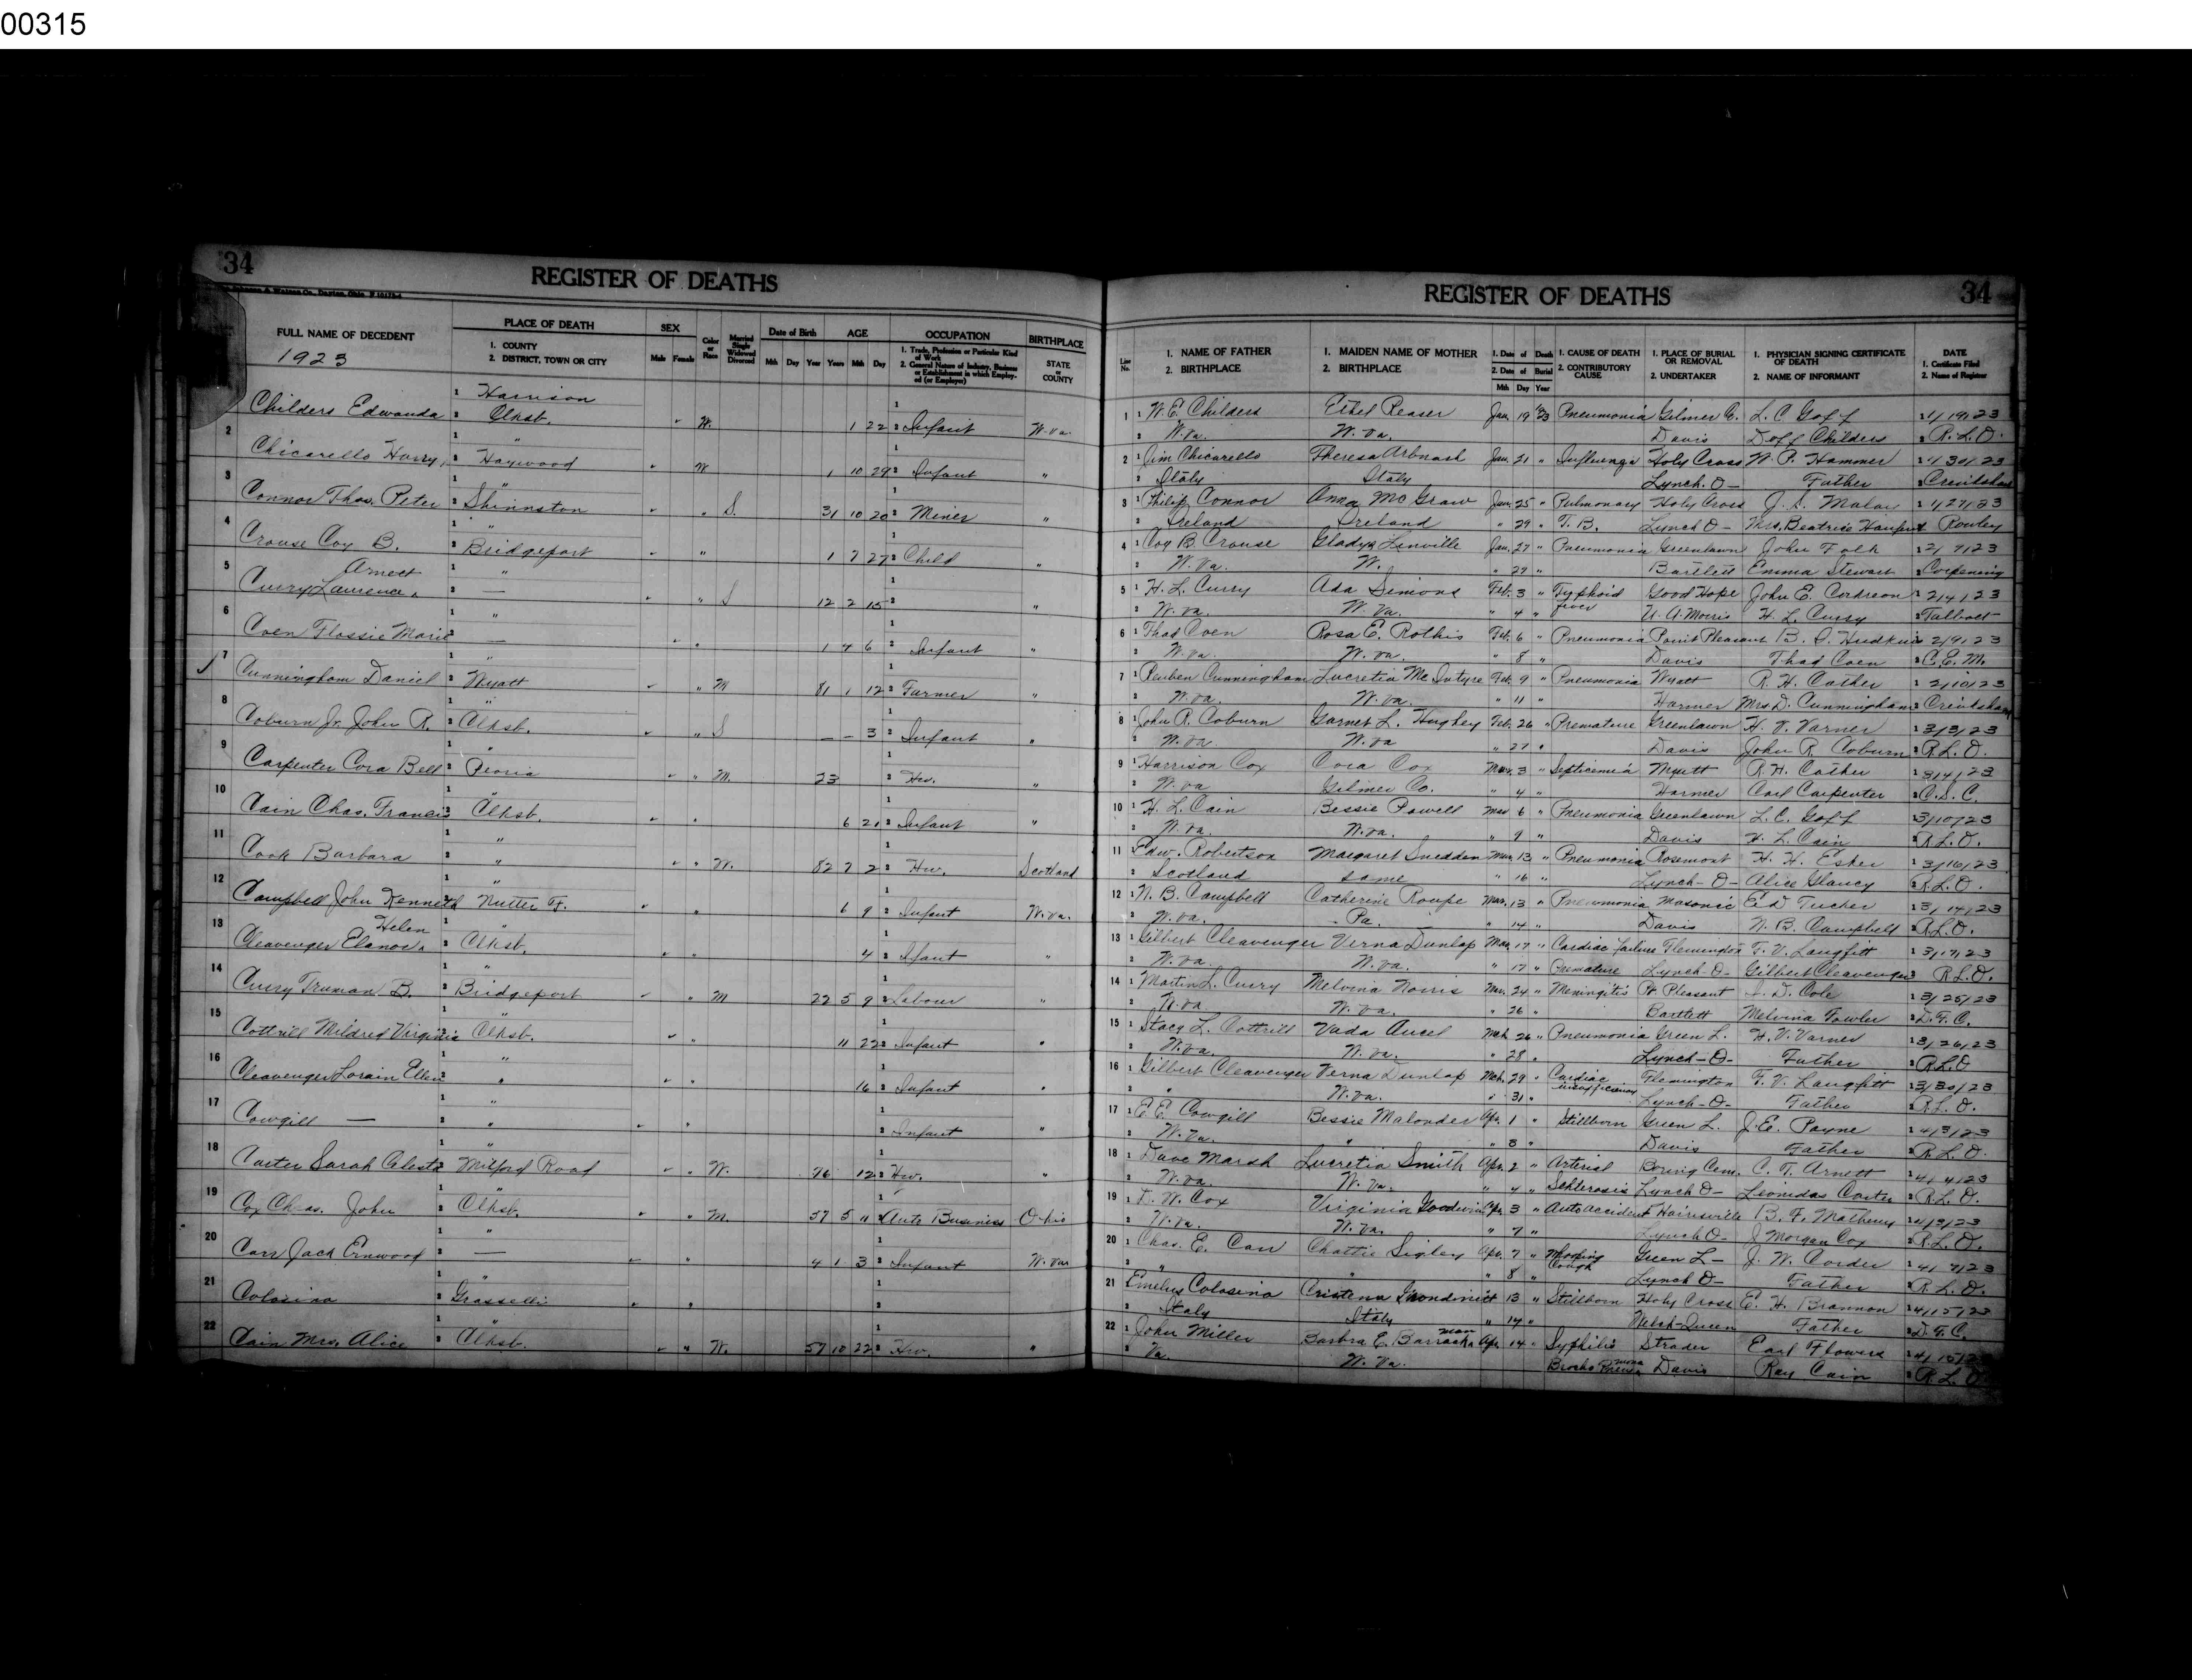 00315
34
REGISTER OF DEATHS
FULL NAME OF DECEDENT
1923
PLACE OF DEATH
1. COUNTY
2. DISTRICT, TOWN OR CITY
SEX
Male Female
Color or Race
Married Single Widowed Divorced
Date of Birth
Mth Day Year
AGE
Years Mth Day
OCCUPATION
1. Trade, Profession or Particular Kind of Work
2. General Nature of Industry, Business or Establishment in which Employed (or Employer)
BIRTHPLACE
STATE or COUNTY
1 Harrison
Childers Edwanda 2 Clksb. W. 1 22 Infant W. Va.
2 Chicarello Harry, Haywood W 1 10 29 Infant "
3 Connor Thos. Peter Shinnston " S. 31 10 20 Miner "
4 Crouse Coy B. Bridgeport " 1 7 27 Child "
5 Curry Lawrence Arnett — " S 12 2 15 "
6 Coen Flossie Marie — " 1 4 6 Infant "
7 Cunningham Daniel Wyatt " M 81 1 12 Farmer "
8 Coburn Jr. John R. Clksb. " S — — 3 Infant "
9 Carpenter Cora Bell Peoria " M. 23 Hw. "
10 Cain Chas. Francis Clksb. " 6 21 Infant "
11 Cook Barbara " " W. 82 7 2 Hw. Scotland
12 Campbell John Kenneth Nutter F. " 6 9 Infant W. Va.
13 Cleavenger Elanor Helen Clksb. " 4 Ifant "
14 Curry Truman B. Bridgeport " M 22 5 9 Labour "
15 Cottrill Mildred Virginia Clksb. " 11 22 Infant "
16 Cleavenger Lorain Ellen " " 16 Infant "
17 Cowgill — " " Infant "
18 Carter Sarah Celesta Milford Road " W. 76 12 Hw. "
19 Cox Chas. John Clksb. " M. 57 5 11 Auto Business Ohio
20 Carr Jack Ernwood — " 4 1 3 Infant W. Va
21 Colasina Grasselli "
22 Cain Mrs. Alice Clksb. " W. 57 10 22 Hw. "
REGISTER OF DEATHS
34
Line No.
1. NAME OF FATHER
2. BIRTHPLACE
1. MAIDEN NAME OF MOTHER
2. BIRTHPLACE
1. Date of Death
2. Date of Burial
Mth Day Year
1. CAUSE OF DEATH
2. CONTRIBUTORY CAUSE
1. PLACE OF BURIAL OR REMOVAL
2. UNDERTAKER
1. PHYSICIAN SIGNING CERTIFICATE OF DEATH
2. NAME OF INFORMANT
DATE
1. Certificate Filed
2. Name of Registrar
1 W. E. Childers Ethel Reaser Jan. 19 23 Pneumonia Gilmer C. L. C. Goff 1/19/23
W. Va. W. Va. Davis Doff Childers R. L. O.
2 Jim Chicarello Theresa Jan. 21 " Influenza Holy Cross W. P. Hammer 1/30/23
Italy Italy Lynch. O— Father
3 Philip Connor Anna McGraw Jan. 25 " Pulmonary Holy Cross J. S. 1/27/23
Ireland Ireland " 29 " T. B. Lynch O— Mrs. Beatrice Rowley
4 Coy B. Crouse Gladys Linville Jan. 27 " Pneumonia Greenlawn John Folk 2/9/23
W. Va. W. " 29 " Bartlett Emma Stewart Corpening
5 H. L. Curry Ada Simons Feb. 3 " Typhoid fever Good Hope John E. 2/4/23
W. Va. W. Va. " 4 " U. A. Morris H. L. Curry Talbott
6 Thad Coen Rosa E. Feb. 6 " Pneumonia Point Pleasant B. S. 2/9/23
W. Va. W. Va. " 8 " Davis Thad Coen C. E. M.
7 Reuben Cunningham Lucretia McIntyre Feb. 9 " Pneumonia Wyatt R. H. Cather 2/10/23
W. Va. W. Va. " 11 " Harmer Mrs. D. Cunningham
8 John R. Coburn Garnet L. Hughey Feb. 26 " Premature Greenlawn H. V. Varner 3/3/23
W. Va W. Va " 27 " Davis John R. Coburn R. L. O.
9 Harrison Cox Cora Cox Mar. 3 " Septicemia Wyatt R. H. Cather 3/4/23
W. Va Gilmer Co. " 4 " Harmer Carl Carpenter C. S. C.
10 H. L. Cain Bessie Powell Mar 6 " Pneumonia Greenlawn L. C. Goff 3/10/23
W. Va. W. Va. " 9 " Davis H. L. Cain R. L. O.
11 Edw. Robertson Margaret Snedden Mar. 13 " Pneumonia Rosemont H. H. Esker 3/16/23
Scotland same " 16 " Lynch-O- Alice Glancy R. L. O.
12 N. B. Campbell Catherine Roupe Mar. 13 " Pneumonia Masonic Ed Tucker 3/14/23
W. Va. Pa. " 14 " Davis N. B. Campbell R. L. O.
13 Gilbert Cleavenger Verna Dunlap Mar. 17 " Cardiac failure Flemington F. V. Langfitt 3/17/23
W. Va. W. Va. " 17 " Premature Lynch-O- Gilbert Cleavenger R. L. O.
14 Martin L. Curry Melvina Norris Mar. 24 " Meningitis Pt Pleasant D. Cole 3/25/23
W. Va W. Va. " 26 " Bartlett Melvina Fowler D. F. C.
15 Stacy L. Cottrill Vada Aucel Mch. 26 " Pneumonia Green L. H. V. Varner 3/26/23
W. Va. W. Va. " 28 " Lynch-O- Father R. L. O
16 Gilbert Cleavenger Verna Dunlap Mch. 29 " Cardiac Flemington F. V. Langfitt 3/30/23
" W. Va. " 31 " Lynch-O- Father R. L. O.
17 E. E. Cowgill Bessie Malonder Apr. 1 " Stillborn Green L. J. E. Payne 4/3/23
W. Va. " " 3 " Davis Father R. L. O.
18 Dave Marsh Lucretia Smith Apr. 2 " Arterial Cem. C. T. Arnett 4/4/23
W. Va. W. Va. " 4 " Schlerosis Lynch O— Leonidas Carter R. L. O.
19 W. Cox Virginia Goodwin Apr. 3 " Auto accident Hairsville B. F. Matheny 4/3/23
W. Va. W. Va. " 7 " Lynch O— J Morgan Cox R. L. O.
20 Chas. E. Carr Chattie Sigley Apr. 7 " Whooping Cough Green L— J. W. Corder 4/7/23
" " " 8 " Lynch O— Father R. L. O.
21 Colasina Cristena 13 " Stillborn Holy Cross E. H. Brannon 4/15/23
Italy Italy " 14 " Father D. F. C.
22 John Miller Barbra E. Apr. 14 " Syphilis Strader Earl Flowers 4/15/23
Va. W. Va. Davis Ray Cain R. L. O